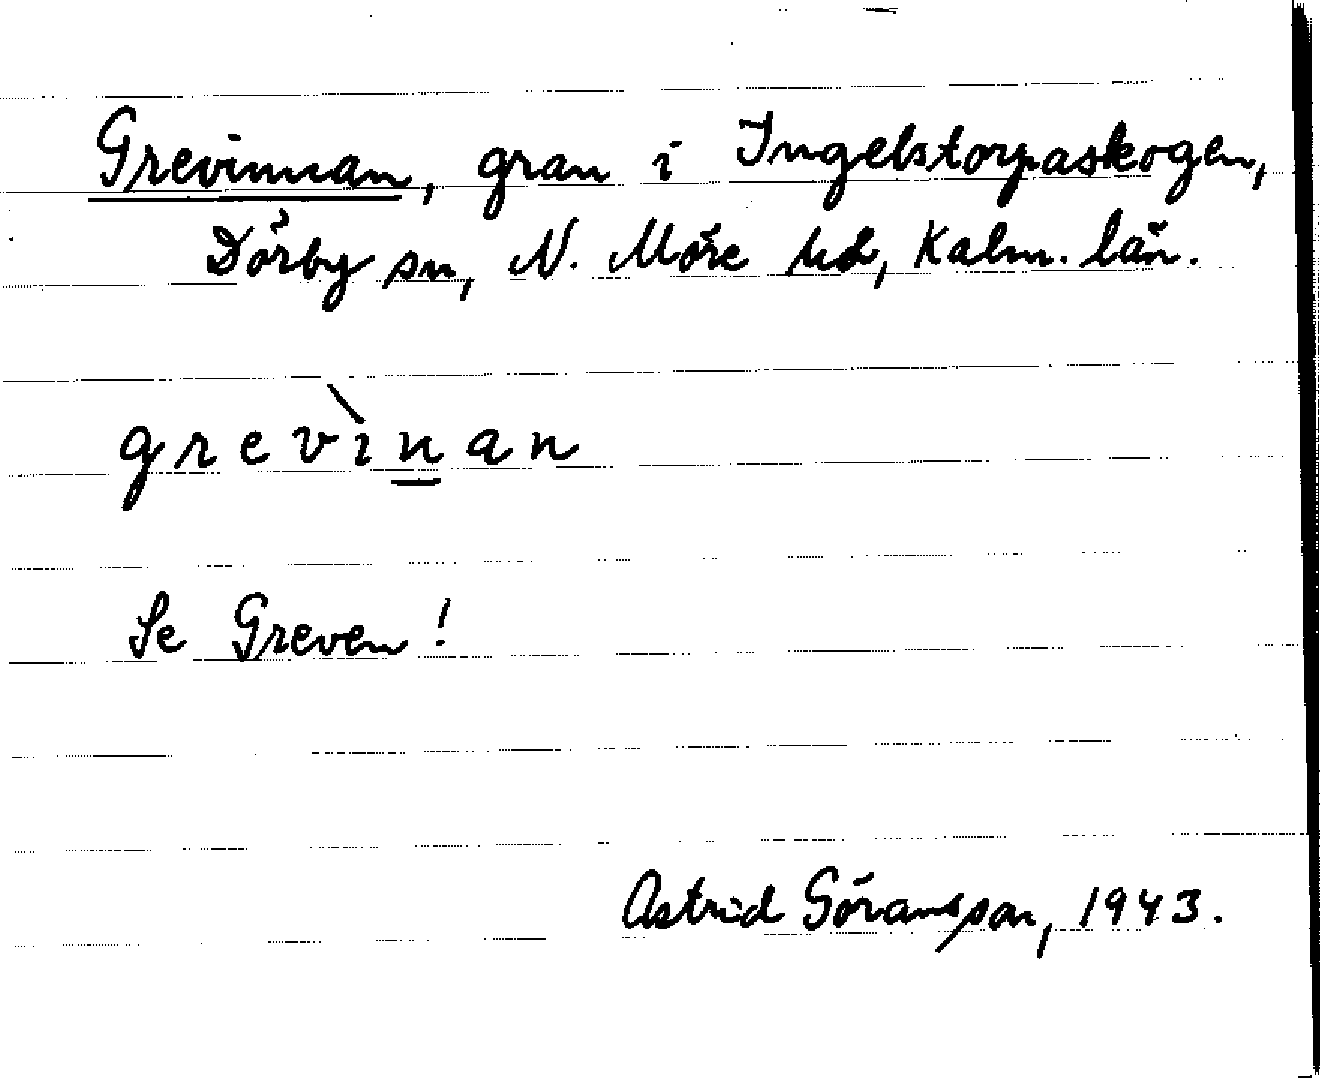 Grevinnan, gran i Ingelstorpaskogen,
Dörby sn, N. Möre hd, Kalm. län.
grevìnan
Se Greven!
Astrid Göransson, 1943.